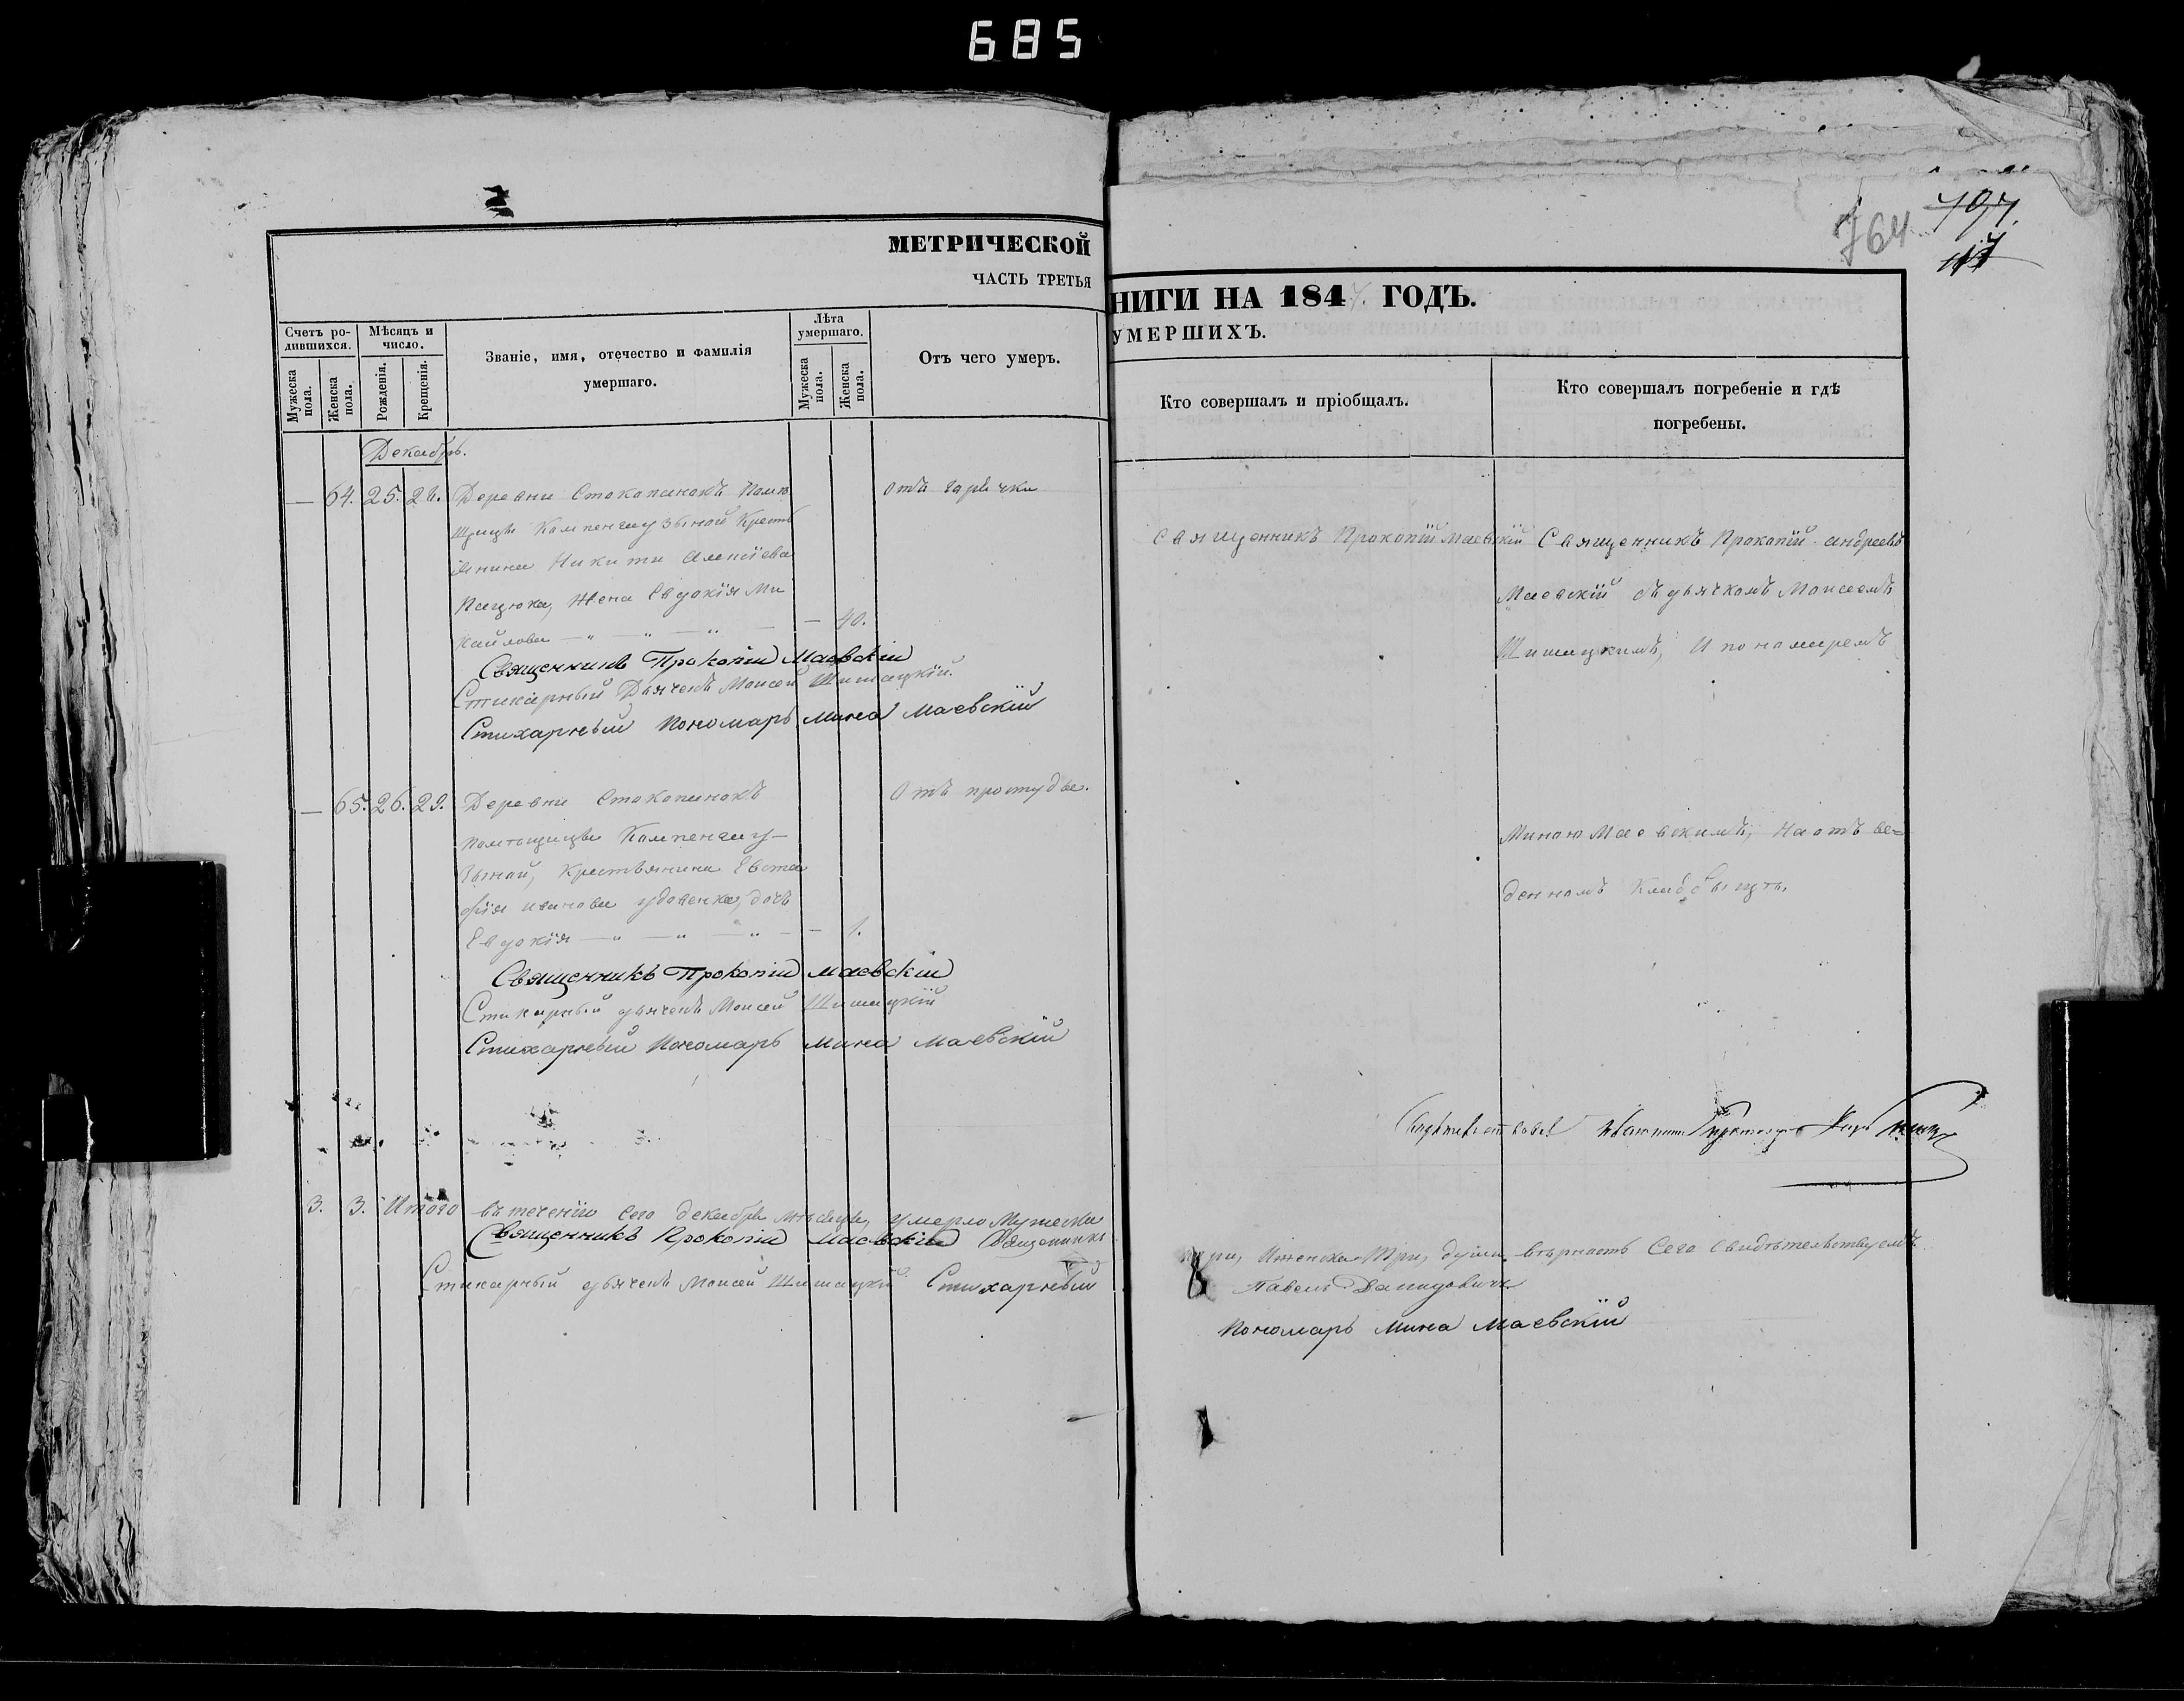 685
764 797.
МЕТРИЧЕСКОЙ
ЧАСТЬ ТРЕТЬЯ
НИГИ НА 1847. ГОДЪ.
УМЕРШИХЪ.
Счетъ ро-
дившихся.
Мужеска
пола.
Женска
пола.
Мѣсяцъ и
число.
Рожденія.
Крещенія.
Званіе, имя, отечество и фамилія
умершаго.
Лѣта
умершаго.
Мужеска
пола.
Женска
пола.
Отъ чего умеръ.
Кто совершалъ и пріобщалъ.
Кто совершалъ погребеніе и гдѣ
погребены.
Декабрь.
— 64. 25. 28. Деревни Стокопанокъ Помѣ отъ гарячки
щицы Крестъ
янина Никити Алексіева
Пацюка, жена Евдокія Ми
хайлова — — — — — 40.
Священникъ Прокопій Маевскій
Стихарный Дьячекъ Моисей Шишацкій.
Стихарный Пономарь Мина Маевскій
Священникъ Прокопій Маевскій
Священникъ Прокопій Андреевъ
Маевскій съ дьячкомъ Моисеемъ
Шишацкимъ, И пономаремъ
— 65. 26. 29. Деревни Стокопанокъ Отъ простуды.
помѣщицы
крестьянина Евста
фія Иванова удовенка, дочь
Евдокія — — — — — 1.
Священникъ Прокопій Маевскій
Стихарный дьячекъ Моисей Шишацкій
Стихарный Пономарь Мина Маевскій
Миною Маевскимъ, На отъве=
денномъ Кладбыщѣ.
3. 3. Итого въ теченіи сего декабря мѣсяца, умерло Мужеска
три, Женска Три, души вѣрность сего свидѣтельствуемъ
Священникъ Прокопій Маевскій Священникъ
Павелъ Давидовичъ
Стихарный дьячекъ Моисей Шишацкій Стихарный
Пономарь Мина Маевскій